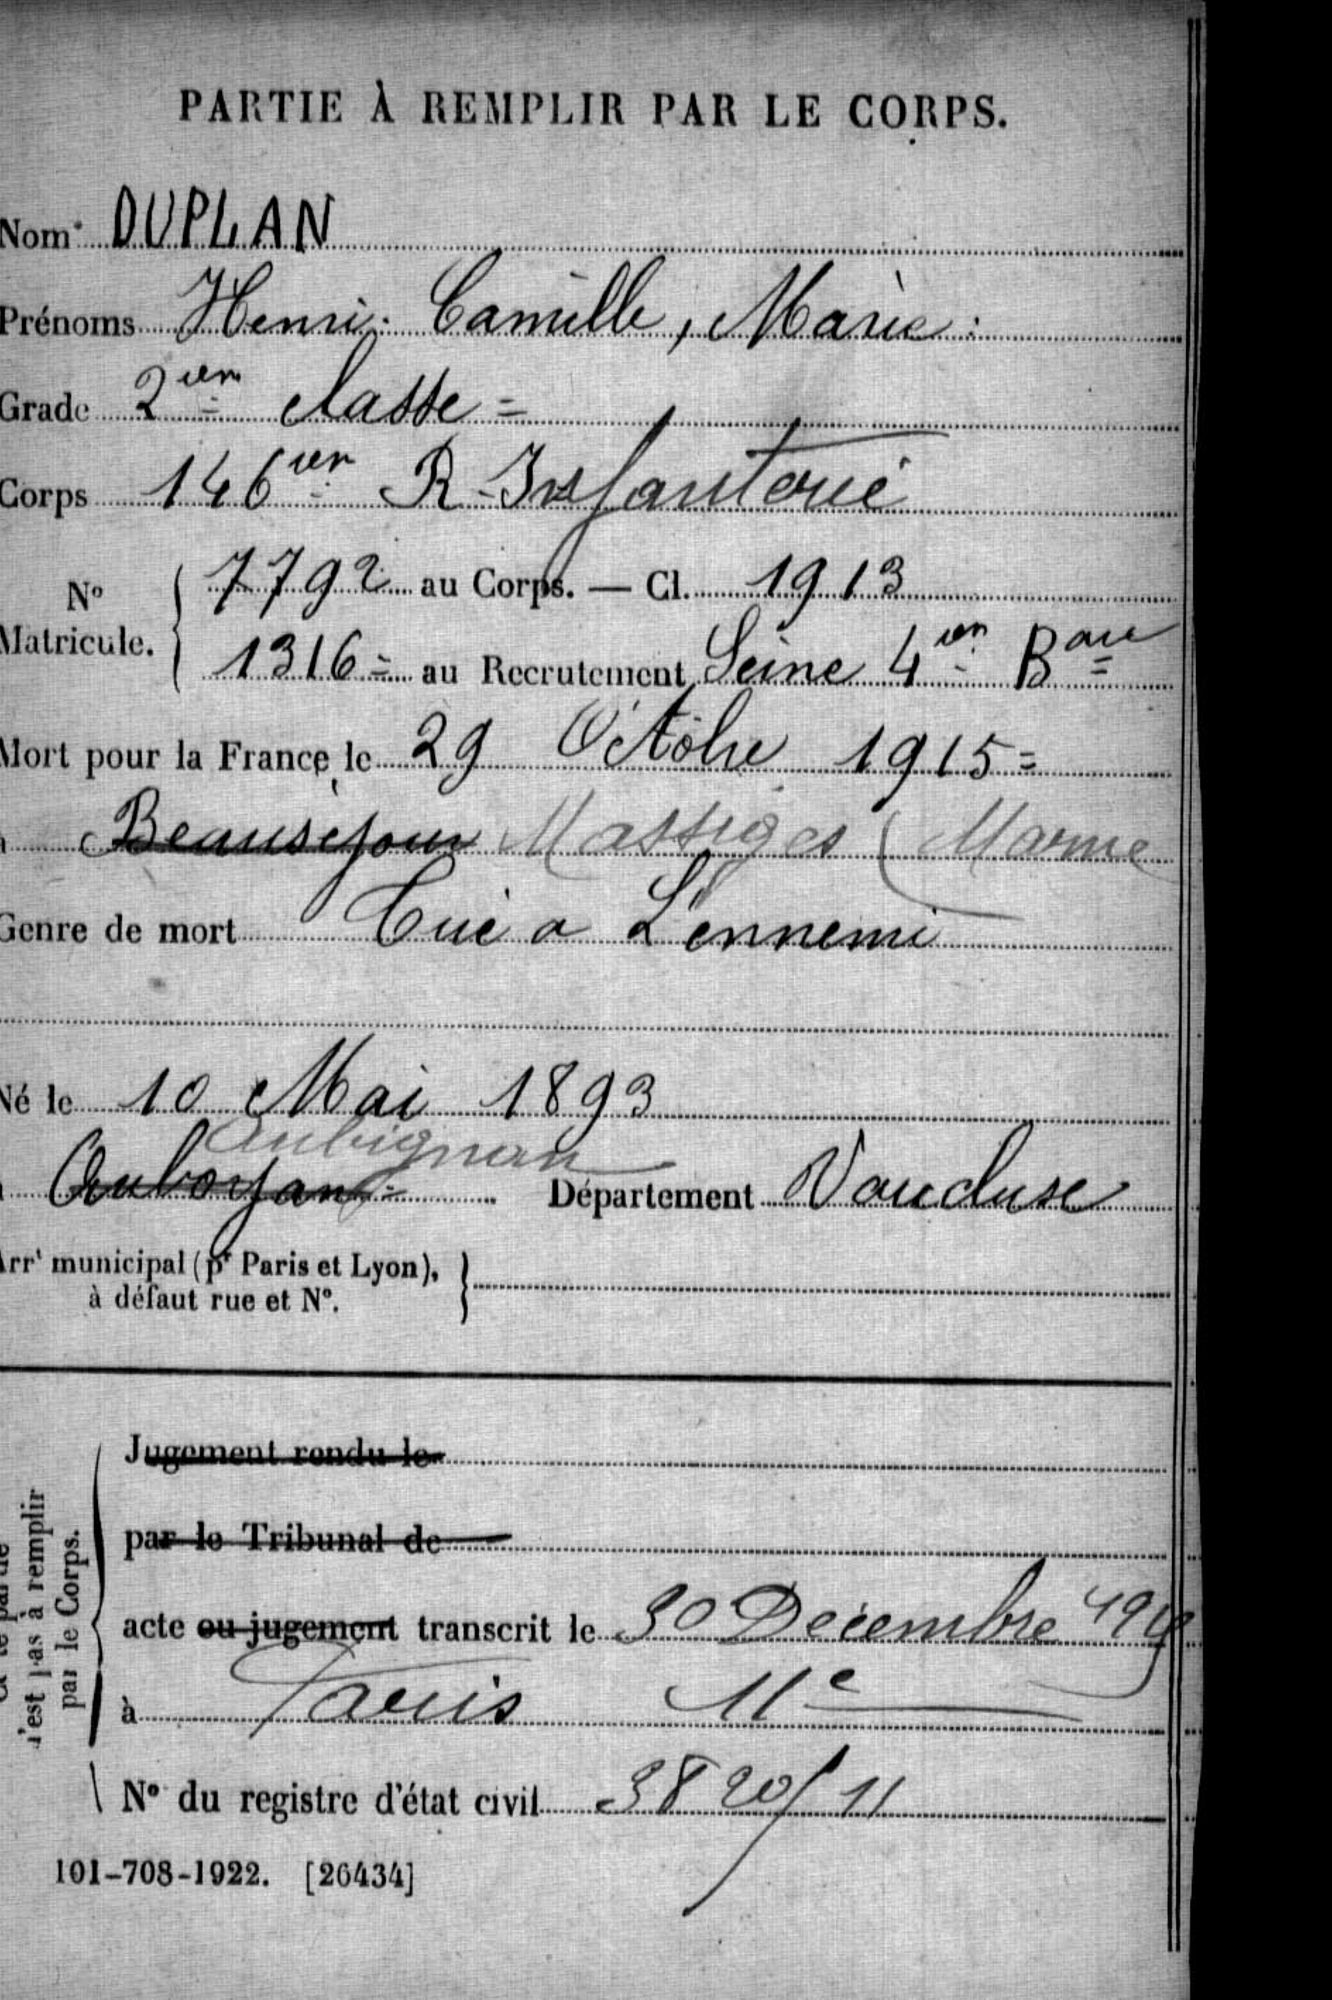 PARTIE À REMPLIR PAR LE CORPS.
Nom DUPLAN
Prénoms Henri Camille, Marie
Grade 2ième classe =
Corps 146ième R. Infanterie
N° Matricule. 7792 au Corps. — Cl. 1913
1316 = au Recrutement Seine 4ième Bau
Mort pour la France le 29 Octobre 1915 =
à Beauséjour Massiges (Marne
Genre de mort Tué a L'ennemi
Né le 10 Mai 1893
Aubignan
Département Vaucluse
Arrt municipal (pr Paris et Lyon),
à défaut rue et N°.
Jugement rendu le
par le Tribunal de
acte ou jugement transcrit le 30 Décembre
à Paris 11e
N° du registre d'état civil 3820/11
n'est pas à remplir
par le Corps.
101-708-1922. [26434]